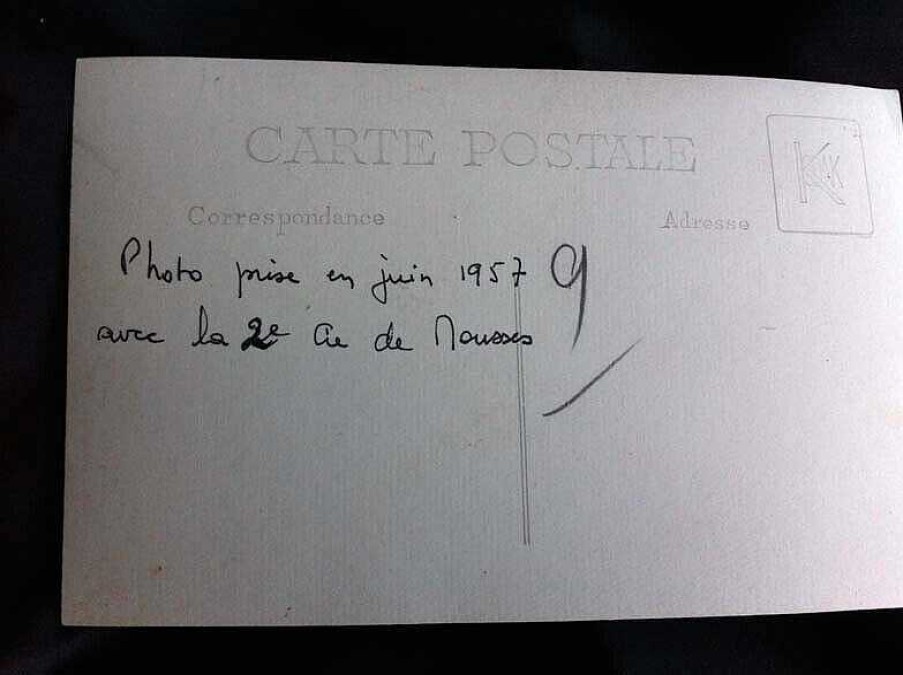 CARTE POSTALE
Correspondance
Adresse
Photo prise en juin 1957 9
avec la 2e Cie de Mousses